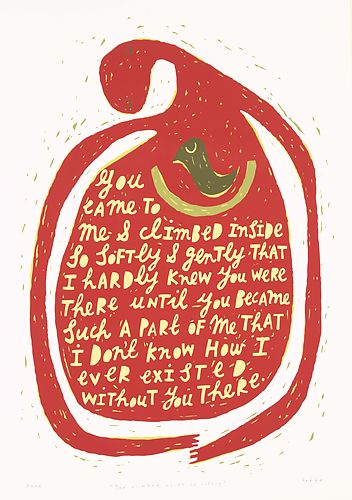 you
came to
me & climbed inside
so softly & gently that
I hardly knew you were
there until you became
such a part of me that
i don't know how I
ever exist'ed
without you there.